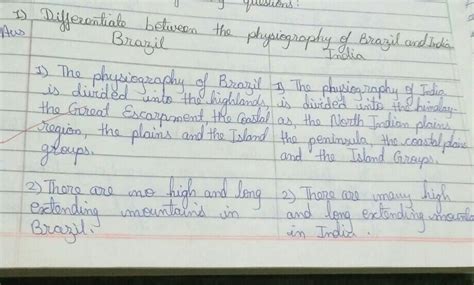 questions:
1) Differentiate between the physiography of Brazil and India
Ans
Brazil
India
1) The physiography of Brazil
is divided into the highlands,
the Great Escarpment, the Coastal
region, the plains and the Island
groups.
1) The physiography of India
is divided into the himalay-
as, the North Indian plains
the peninsula, the coastal plains
and the Island Groups.
2) There are no high and long
extending mountains in
Brazil.
2) There are many high
and long extending mounta
in India.